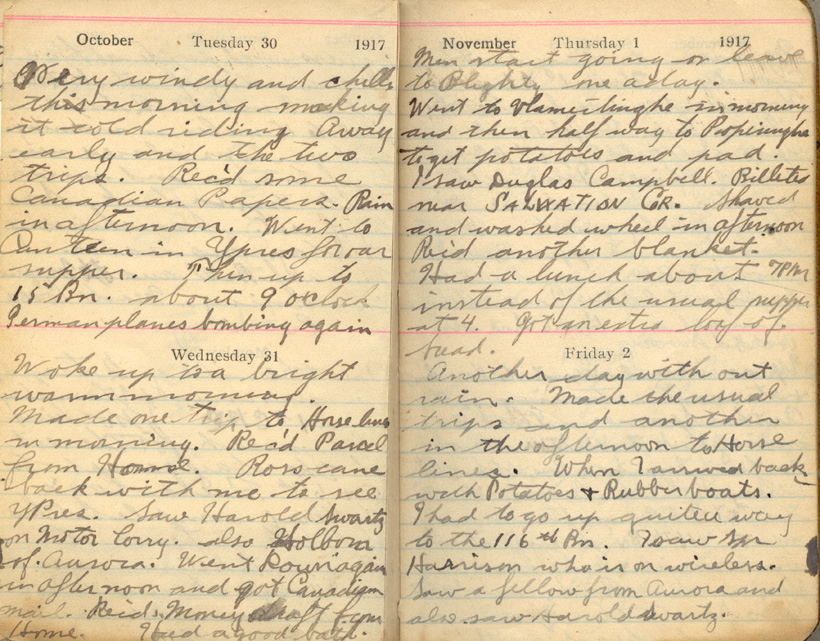 October Tuesday 30 1917
Very windy and chilly
this morning making
it cold riding Away
early and the two
trips. Rec'd some
Canadian Papers. Rain
in afternoon. Went to
Canteen in Ypres for our
supper. Then up to
15 Bn. about 9 oclock
German planes bombing again
Wednesday 31
Woke up to a bright
warm morning.
Made one trip to Horse lines
in morning. Rec'd Parcel
from Home. Ross came
back with me to see
YPres. Saw Harold Swartz
on Motor lorry. also Holborn
of Aurora. Went Down again
in afternoon and got Canadian
mail. Rec'd Money draft from
Home. Had a good bath.
November Thursday 1 1917
Men start going on leave
to Blighty one a day.
Went to Vlamertinghe in morning
and then half way to Popinunghe
to get potatoes and pad.
I saw Duglas Campbell. Billeted
near SALVATION CR. Shaved
and washed wheel in afternoon
Rec'd another blanket.
Had a lunch about 7PM
instead of the usual supper
at 4. Got an extra loaf of
bread.
Friday 2
Another day with out
rain. Made the usual
trips and another
in the afternoon to Horse
lines. When I arrived back
with Potatoes + Rubber boats.
I had to go up quite a way
to the 116th Bn. I saw
Harrison who is on wireless.
Saw a fellow from Aurora and
also saw Harold Swartz.